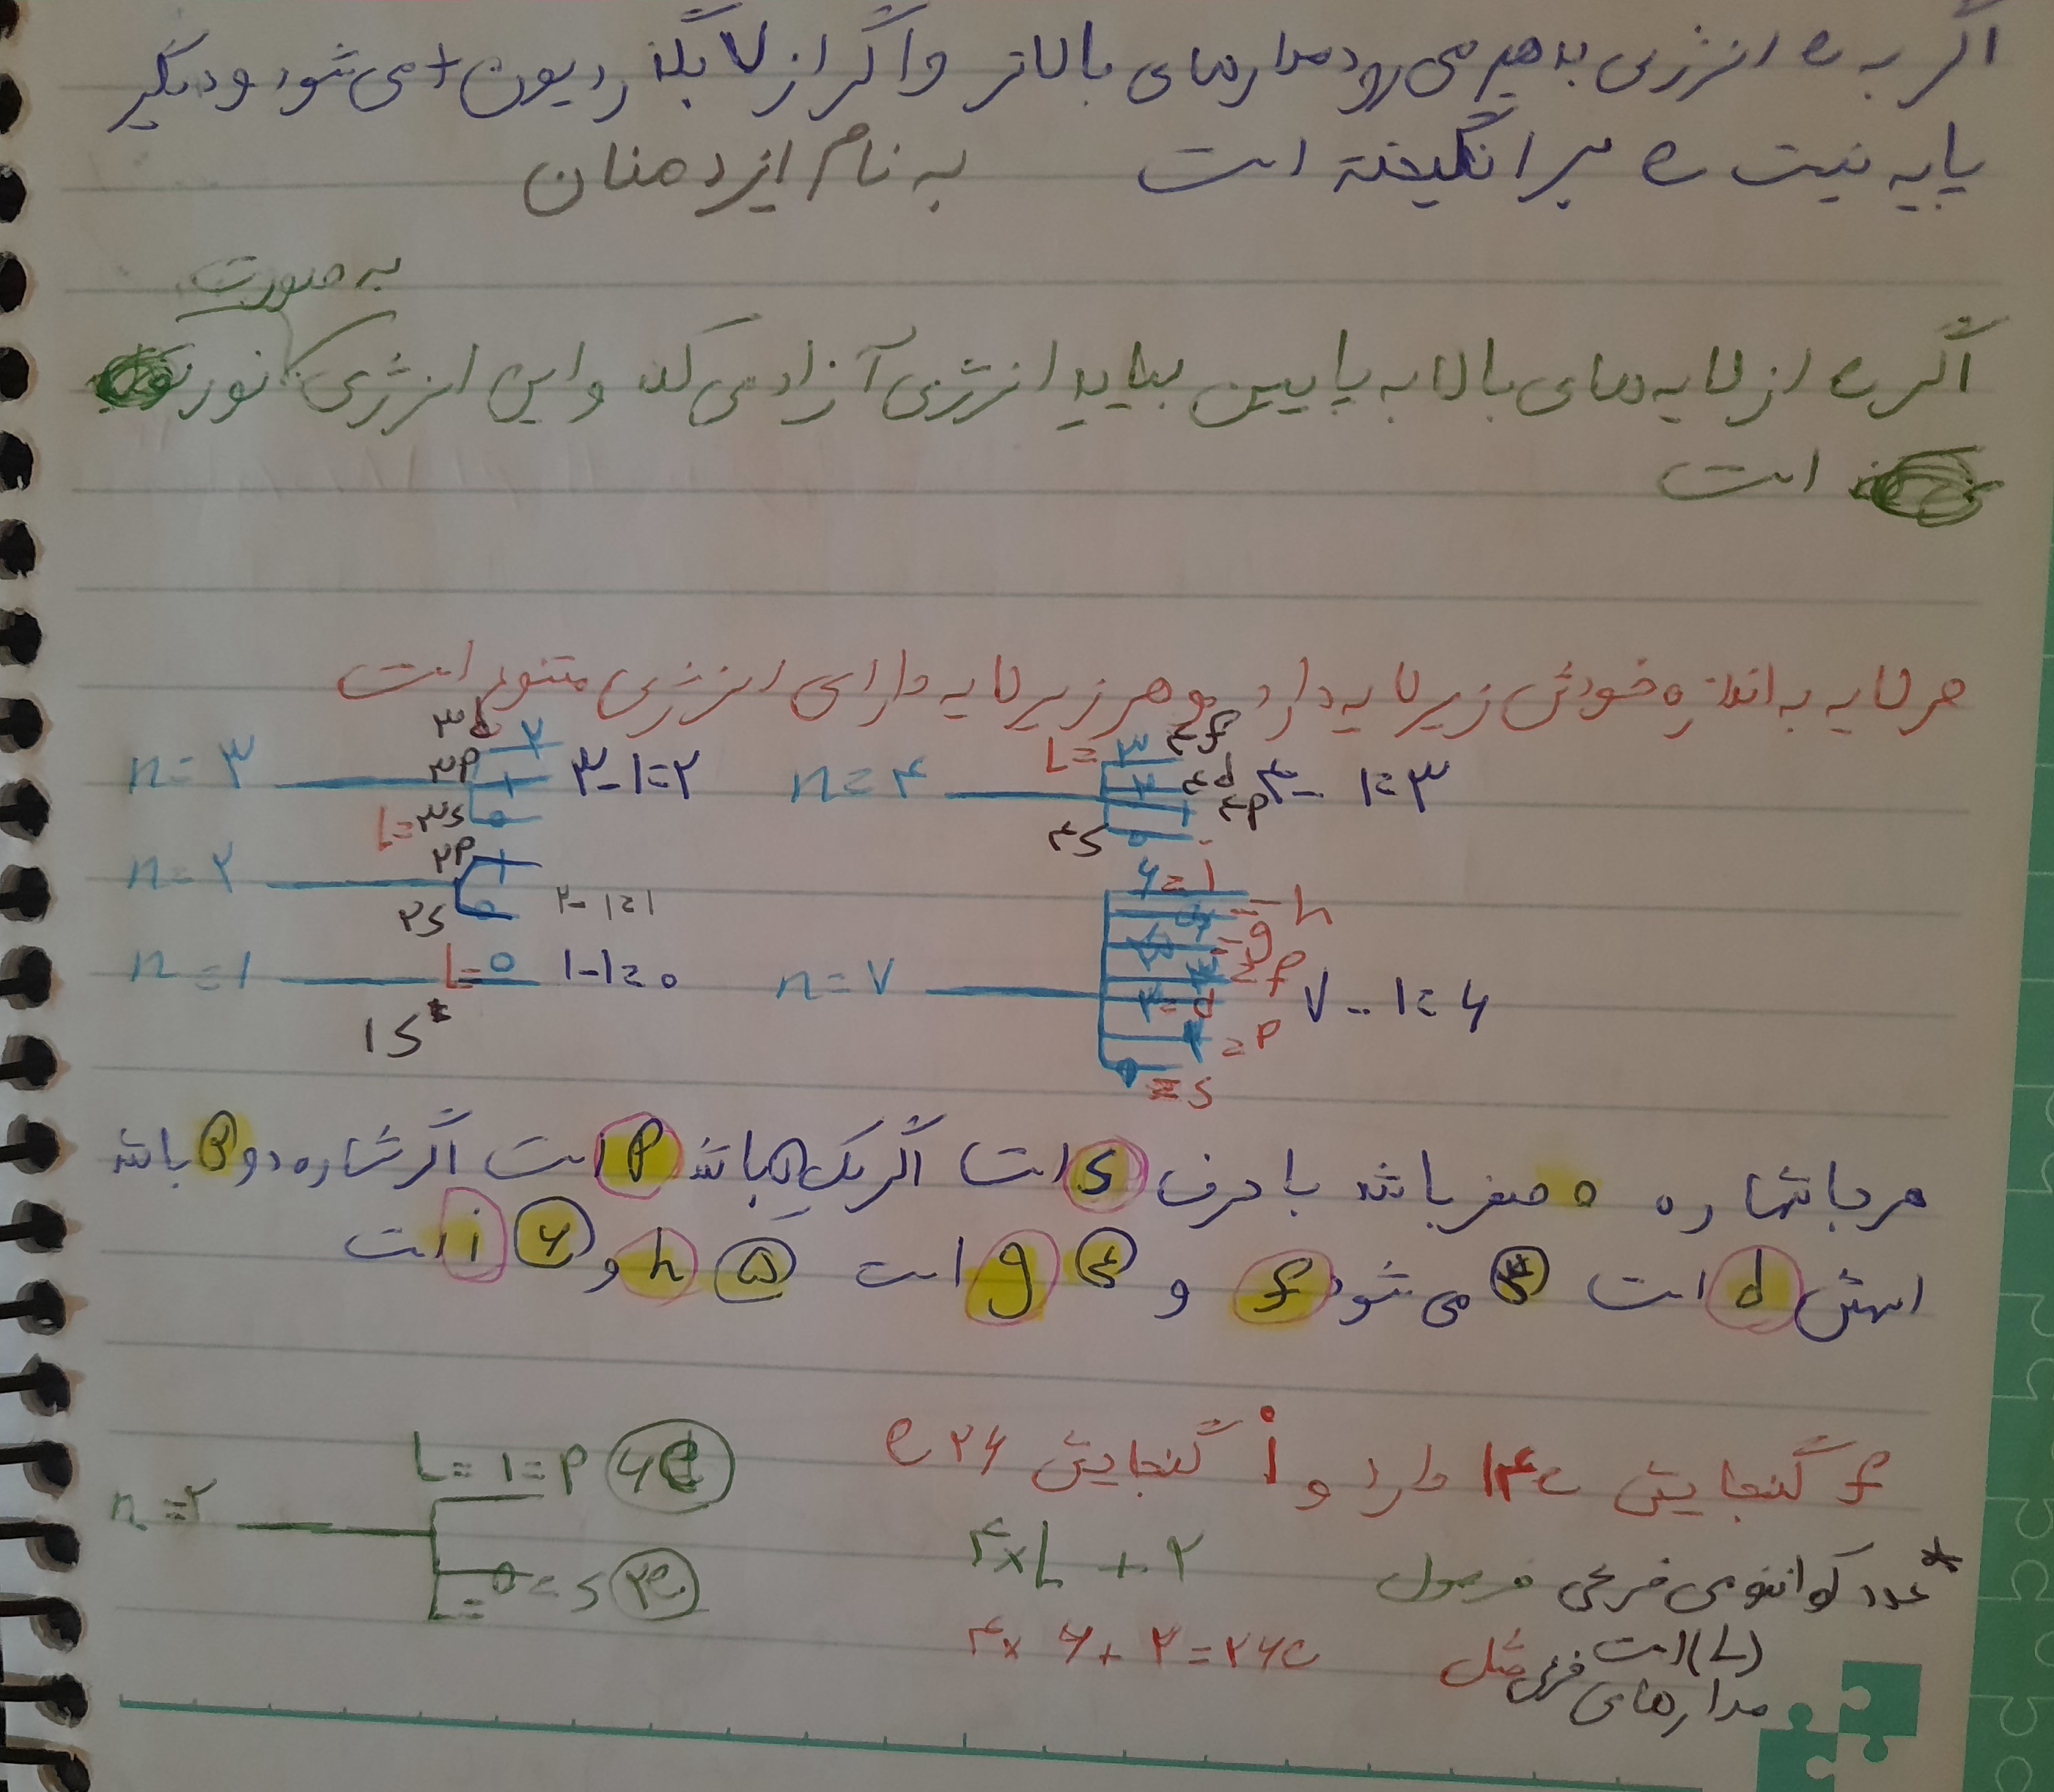 اگر به e انرژی بدهیم می رود مدارهای بالاتر و اگر از ۷ بگذرد یون + می شود و دیگر
پایه نیست e برانگیخته است به نام ایزد منان
به صورت
اگر e از لایه های بالا به پایین بیاید انرژی آزاد می کند و این انرژی نور
است
هر لایه به اندازه خودش زیرلایه دارد و هر زیرلایه دارای انرژی متنوع است
n=۳ L= ۳s ۰ ۳p ۱ ۳d ۲ ۳-۱=۲
n=۴ L= ۳ ۴f ۲ ۴d ۱ ۴p ۰ ۴s ۴-۱=۳
n=۲ ۲p ۱ ۲s ۰ ۲-۱=۱
n=۱ L=۰ ۱-۱=۰
۱s*
n=۷ ۶=i ۵=h ۴=g ۳=f ۲=d ۱=p ۰=s ۷-۱=۶
هرجا شماره ۰ صفر باشد با حرف s است اگر یک ۱ باشد p است اگر شماره دو ۲ باشد
اسمش d است ۳ می شود f و ۴ g است ۵ h و ۶ i است
f گنجایش ۱۴e دارد و i گنجایش ۲۶e
n=۲ L=۱=p ۶e
L=۰=s ۲e
*عدد کوانتومی فرعی فرمول ۴×L+۲
(L) است مثل ۴×۶+۲=۲۶e
مدارهای فرعی